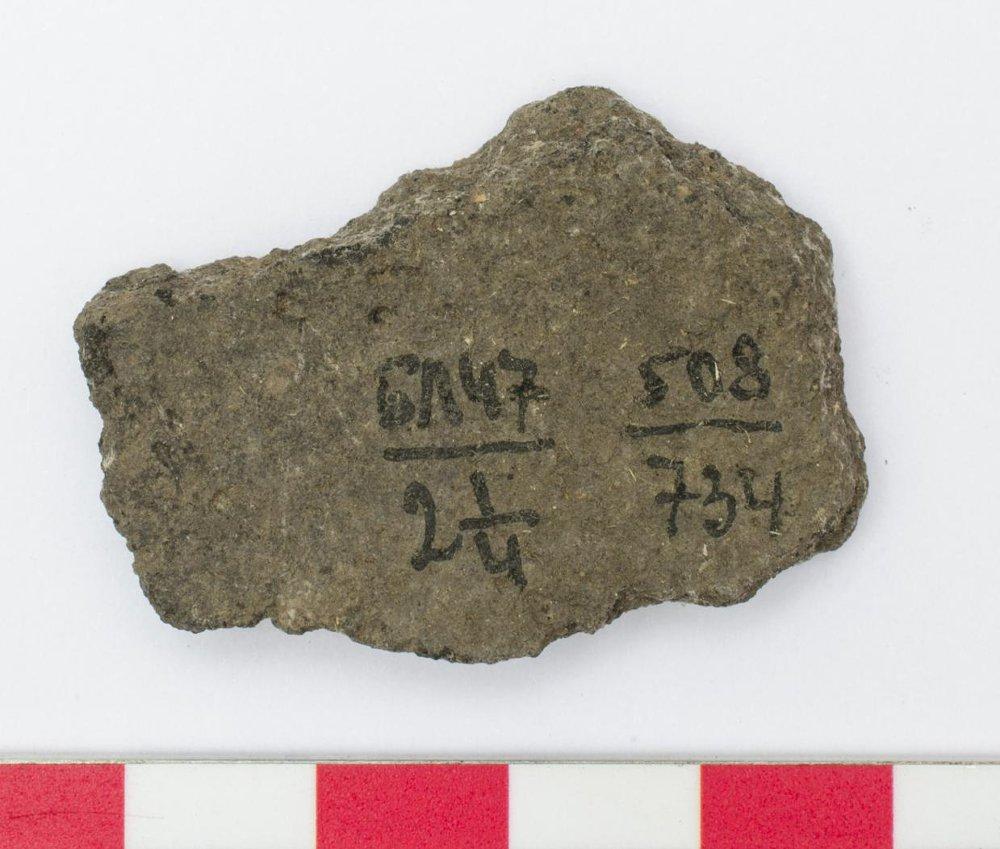 БЛ47
2 1/4
508
734